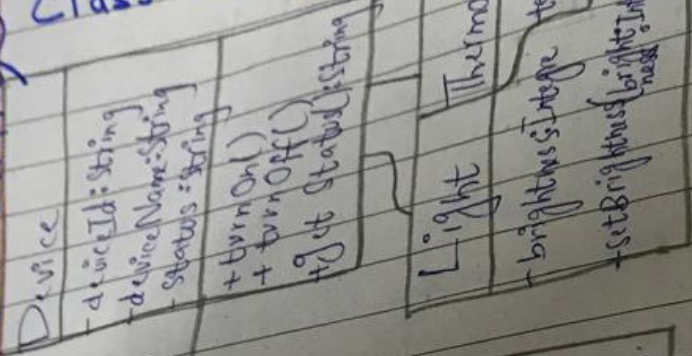 Class
Device
- deviceId: String
- deviceName: String
- Status: String
+ turnOn()
+ turnOff()
+ get Status(): String
Light
- brightness: Intege
+ setBrightness(bright-
ness: Int
Thermo